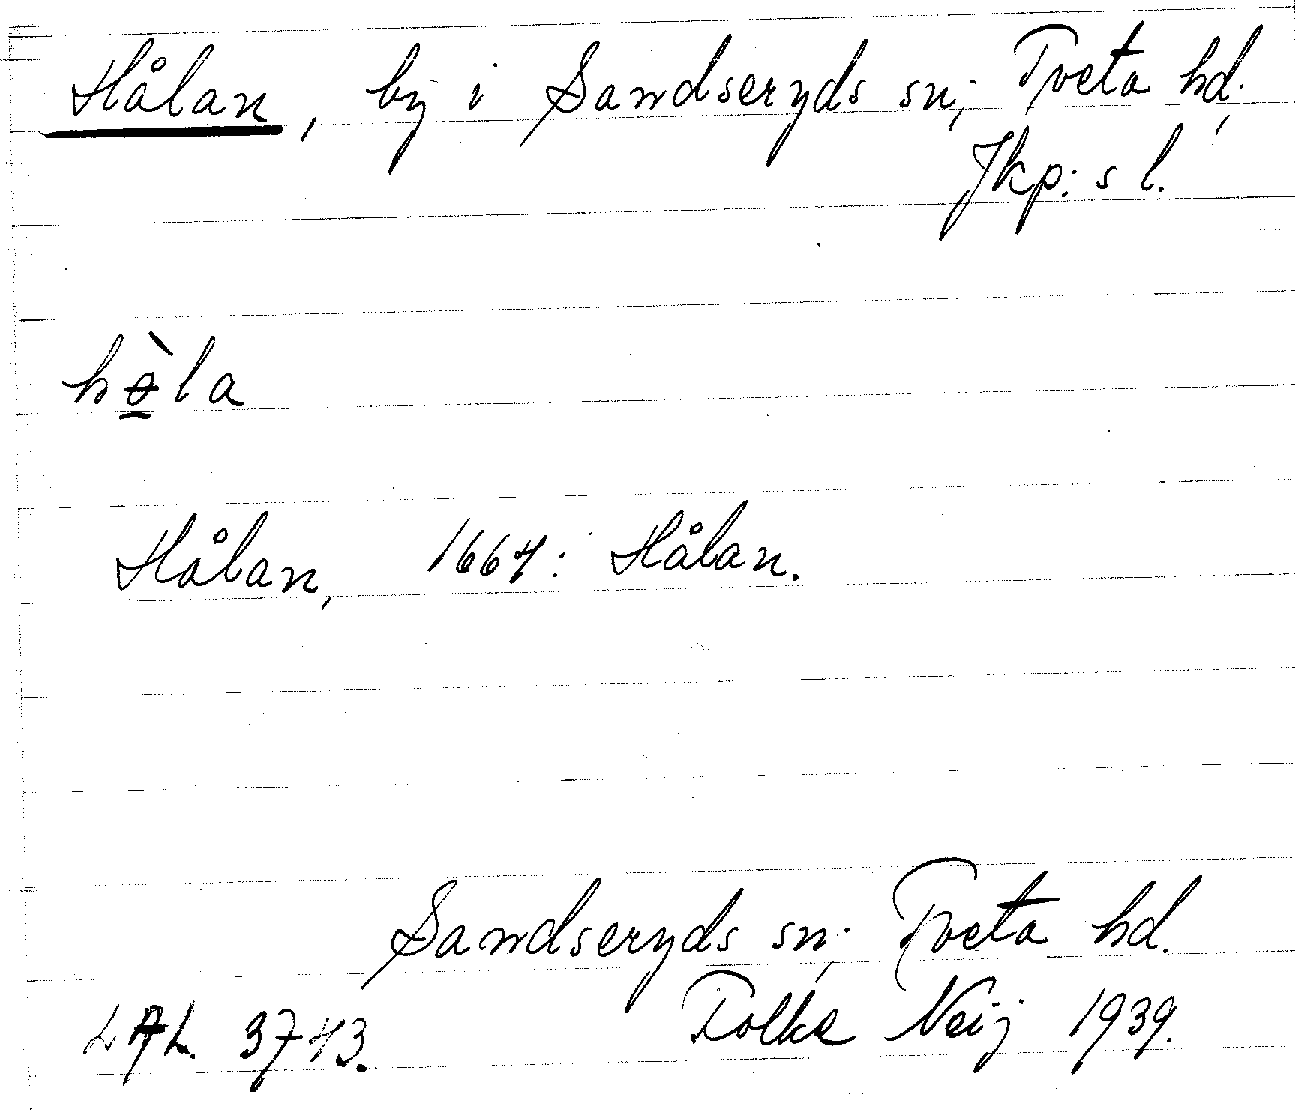 Hålan, by i Sandseryds sn, Tveta hd,
Jkp:s l.
hø̠̀la
Hålan, 1664: Hålan.
Sandseryds sn, Tveta hd.
LAL. 3743. Folke Neij 1939.